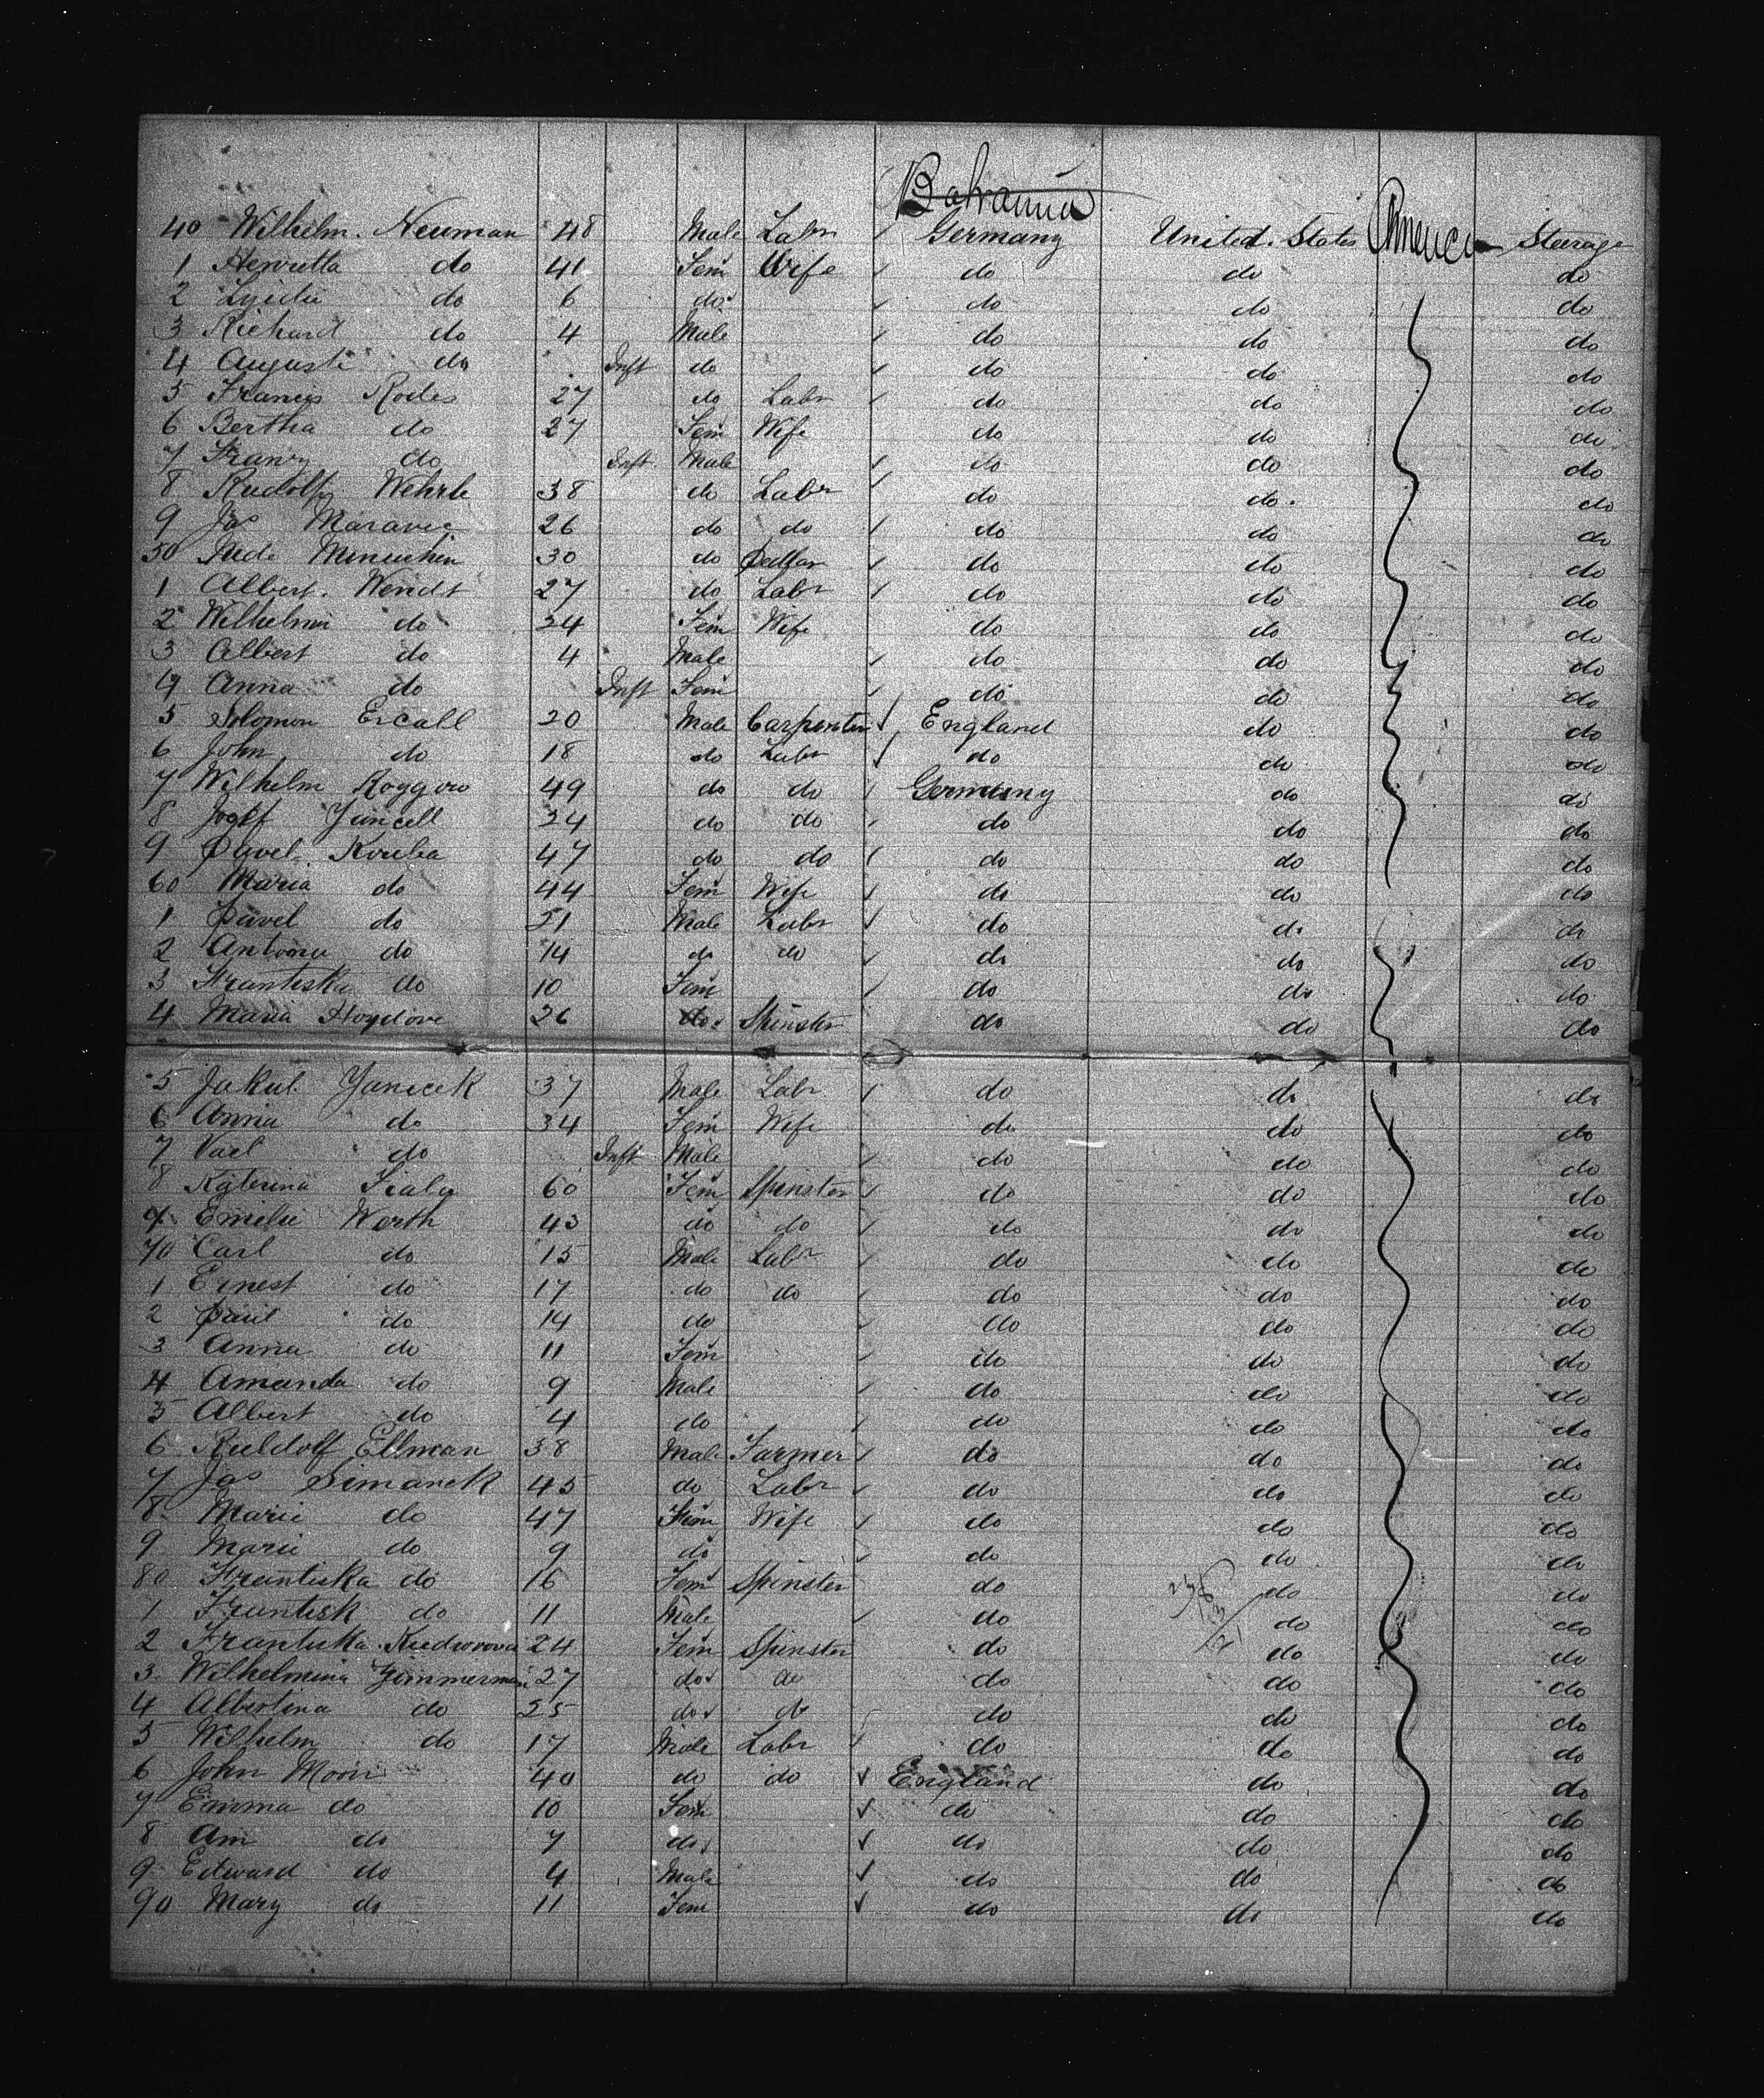 40 Wilhelm. Neuman 48 Male Labr Germany United. States America Steerage
1 Henrietta do 41 Fem Wife do do do
2 Lydie do 6 do do do do
3 Richard do 4 Male do do do
4 August do Inft do do do do
5 Francis Rodes 27 do Labr do do do
6 Bertha do 27 Fem Wife do do do
7 Franz do Inft Male do do do
8 Rudolf Wehrle 38 do Labr do do do
9 Jos Maravec 26 do do do do do
50 Menuchin 30 do Pedlar do do do
1 Albert. Wendt 27 do Labr do do do
2 Wilhelmi do 24 Fem Wife do do do
3 Albert do 4 Male do do do
4 Anna do Inft Fem do do do
5 Solomon Ercall 20 Male Carpenter England do do
6 John do 18 do Labr do do do
7 Wilhelm Roggow 49 do do Germany do do
8 Josef Juncell 24 do do do do do
9 Pavel. Koreba 47 do do do do do
60 Maria do 44 Fem Wife do do do
1 Pavel do 21 Male Labr do do do
2 Antonin do 14 do do do do do
3 Frantiska do 10 Fem do do do
4 Maria 26 do Spinster do do do
5 Jakub. Janicek 37 Male Labr do do do
6 Anna do 34 Fem Wife do do do
7 do Inft Male do do do
8 Katerina Fiala 60 Fem Spinster do do do
9 Emilie Werth 43 do do do do do
70 Carl do 15 Male Labr do do do
1 Ernest do 17 do do do do do
2 Paul do 14 do do do do
3 Anna do 11 Fem do do do
4 Amanda do 9 Male do do do
5 Albert do 4 do do do do
6 Ruldolf Ellman 38 Male Farmer do do do
7 Jos Simanek 45 do Labr do do do
8 Marie do 47 Fem Wife do do do
9 Marie do 9 do do do do
80 Frantiska do 16 Fem Spinster do do do
1 Frantisk do 11 Male do do do
2 Frantiska 24 Fem Spinster do do do
3 Wilhelmina Zimmerman 27 do do do do do
4 Albertina do 25 do do do do do
5 Wilhelm do 17 Male Labr do do do
6 John Moon 40 do do England do do
7 Emma do 10 Fem do do do
8 Am do 7 do do do do
9 Edward do 4 Male do do do
90 Mary do 11 Fem do do do